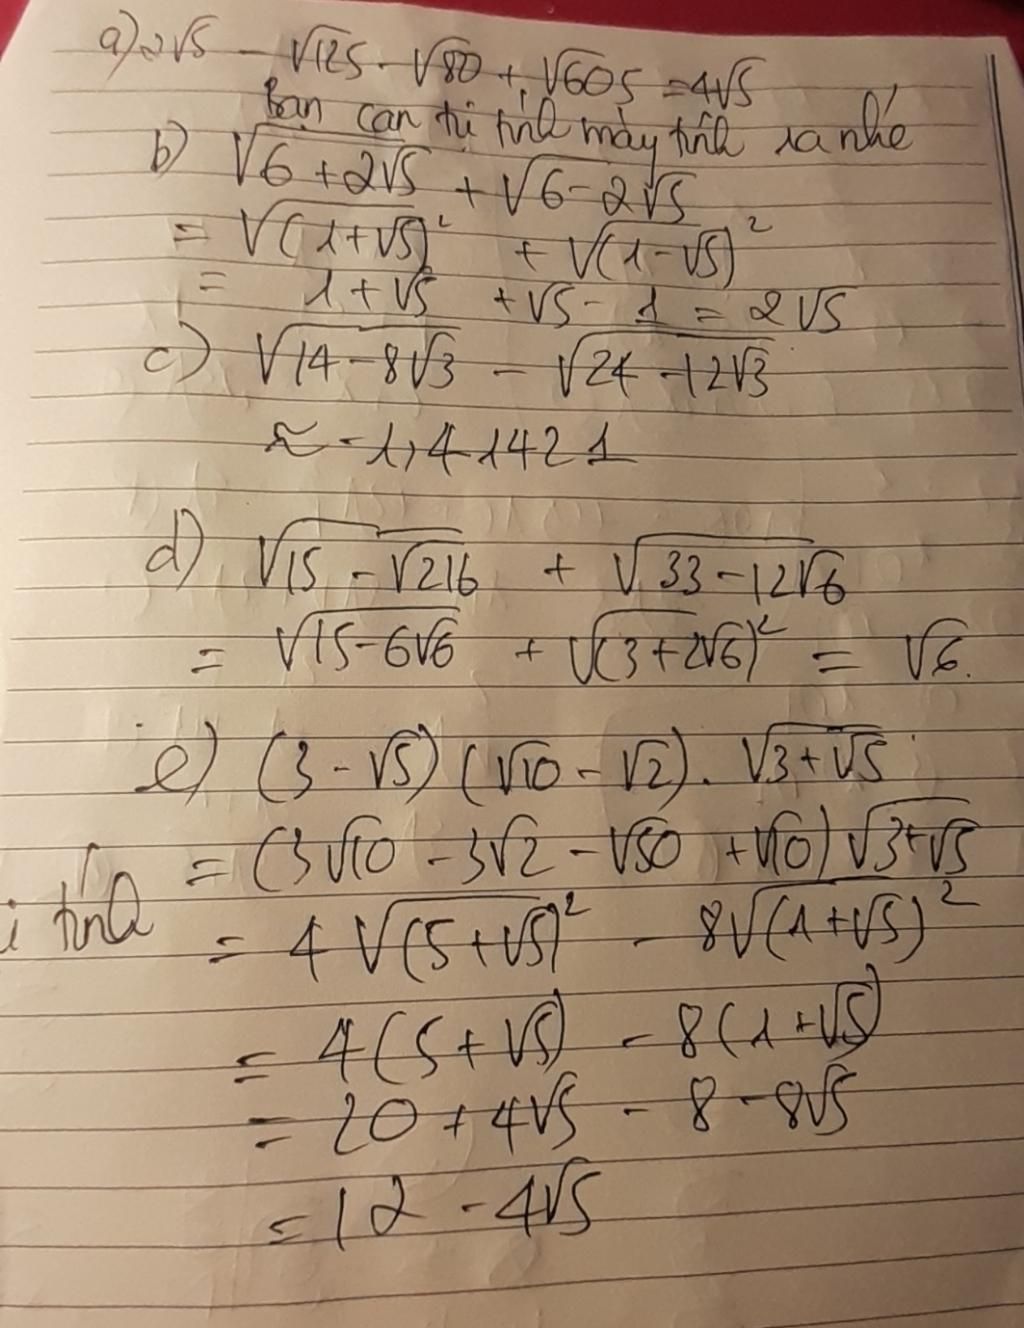 a) 2√5 - √125 - √80 + √605 = 4√5
Bạn can tự tính máy tính ra nhé
b) √(6 + 2√5) + √(6 - 2√5)
= √(1+√5)² + √(1-√5)²
= 1 + √5 + √5 - 1 = 2√5
c) √(14 - 8√3) - √(24 - 12√3)
≈ -1,41421
d) √(15 - √216) + √(33 - 12√6)
= √(15 - 6√6) + √(3+2√6)² = √6.
e) (3 - √5)(√10 - √2). √(3+√5)
= (3√10 - 3√2 - √50 + √10) √(3+√5)
i tính
= 4√(5+√5)² - 8√(1+√5)²
= 4(5+√5) - 8(1+√5)
= 20 + 4√5 - 8 - 8√5
= 12 - 4√5